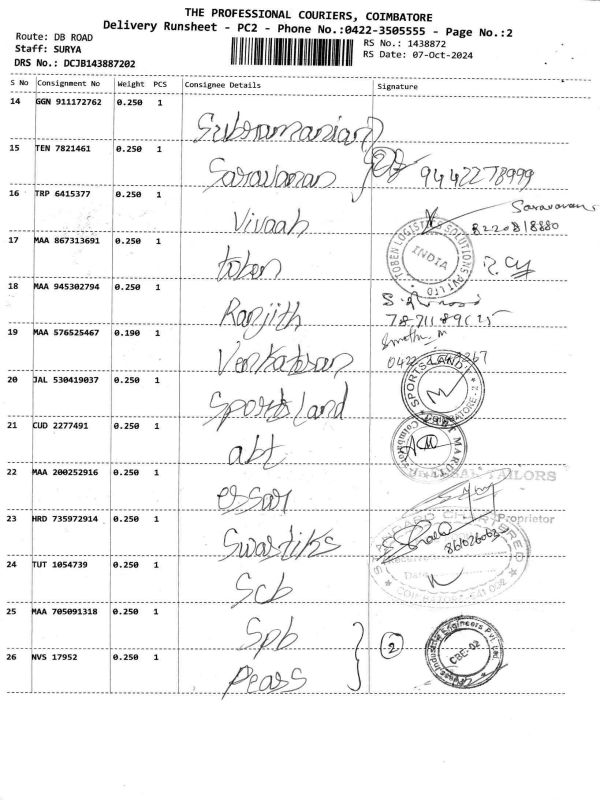 THE PROFESSIONAL COURIERS, COIMBATORE
Delivery Runsheet - PC2 - Phone No.:0422-3505555 - Page No.:2
Route: DB ROAD
Staff: SURYA
DRS No.: DCJB143887202
RS No.: 1438872
RS Date: 07-Oct-2024
S No Consignment No Weight PCS Consignee Details Signature
14 GGN 911172762 0.250 1 Subramanian
15 TEN 7821461 0.250 1 Saravanan 9442278999
16 TRP 6415377 0.250 1 Vivaah Saravanan
8220818880
17 MAA 867313691 0.250 1 toben
TOBEN LOGISTICS SOLUTIONS PVT LTD
INDIA
18 MAA 945302794 0.250 1 Ranjith
19 MAA 576525467 0.190 1 Venkatesan
20 JAL 530419037 0.250 1 Sports Land
SPORTS LAND
21 CUD 2277491 0.250 1 abt
MARUTI
22 MAA 200252916 0.250 1 essar
TAILORS
Proprietor
23 HRD 735972914 0.250 1 Swastiks
24 TUT 1054739 0.250 1 Scb
STANDARD CHARTERED
Date
25 MAA 705091318 0.250 1 Spb
2
26 NVS 17952 0.250 1 Pears
Engineers Pvt. Ltd.
CBE-02